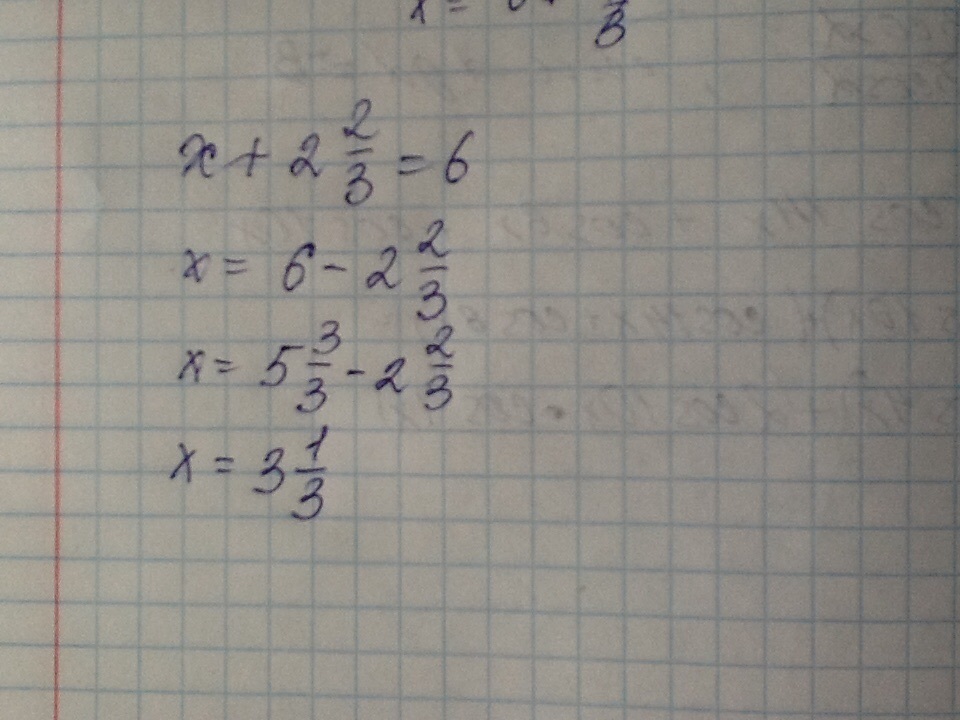 x + 2 2/3 = 6
x = 6 - 2 2/3
x = 5 3/3 - 2 2/3
x = 3 1/3